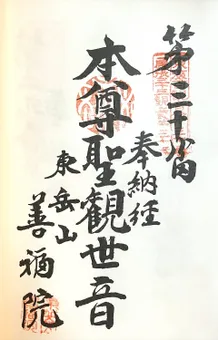 第三十八番
奉納経
本尊聖観世音
東岳山
善福院